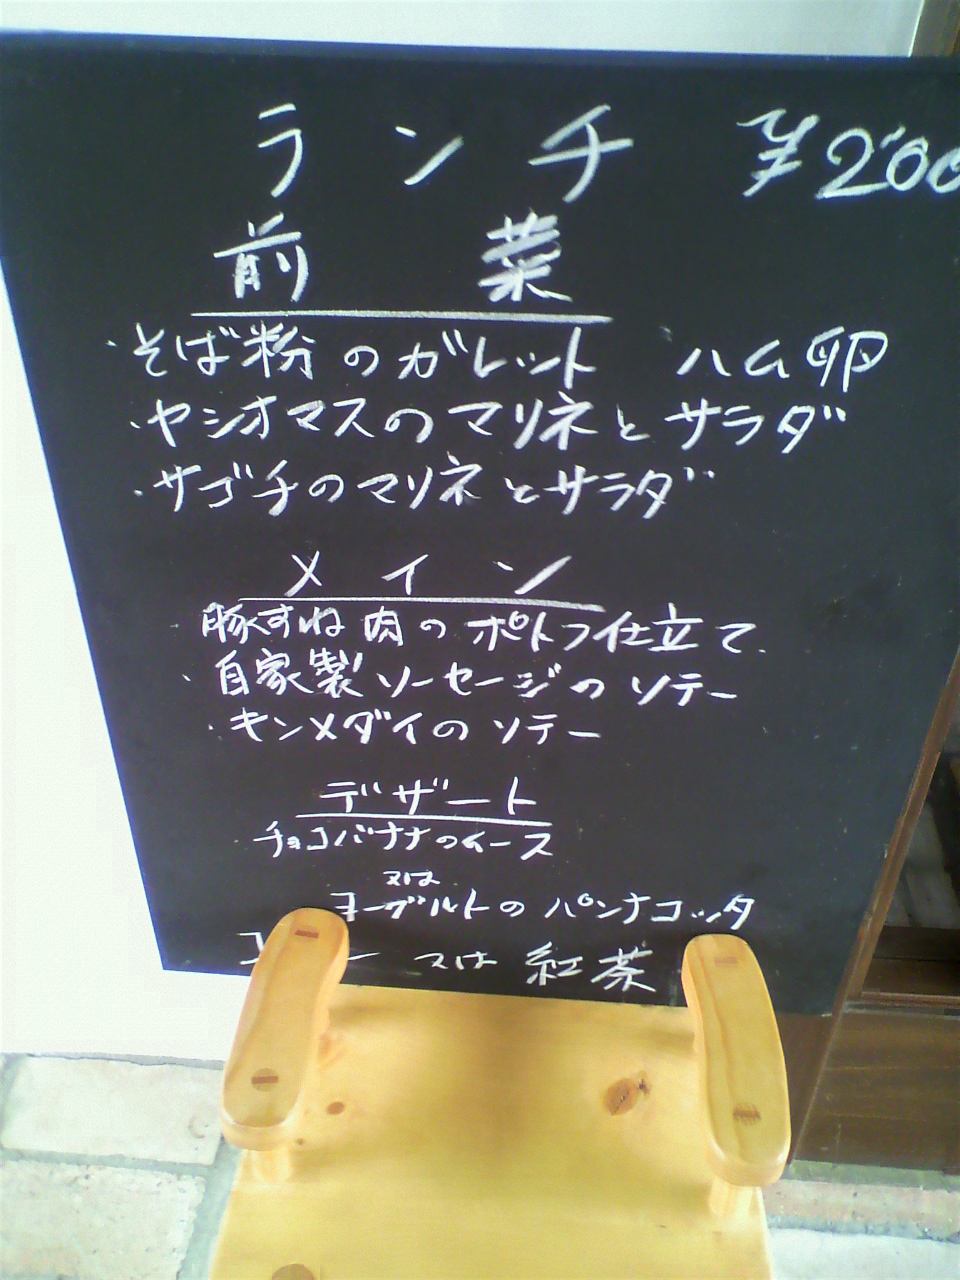 ランチ ¥200
前菜
・そば粉のガレット ハム卵
・ヤシオマスのマリネとサラダ
・サゴチのマリネとサラダ
メイン
豚すね肉のポトフ仕立て
・自家製ソーセージのソテー
・キンメダイのソテー
デザート
チョコバナナのムース
又は
ヨーグルトのパンナコッタ
コ ー 又は 紅茶